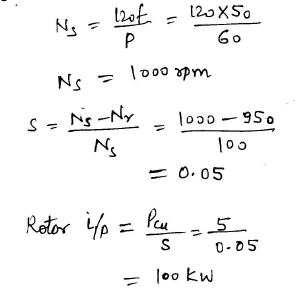 Ns = 120f / P = 120×50 / 60
Ns = 1000 rpm
S = Ns-Nr / Ns = 1000-950 / 100
= 0.05
Rotor i/p = Pcu / S = 5 / 0.05
= 100 kW